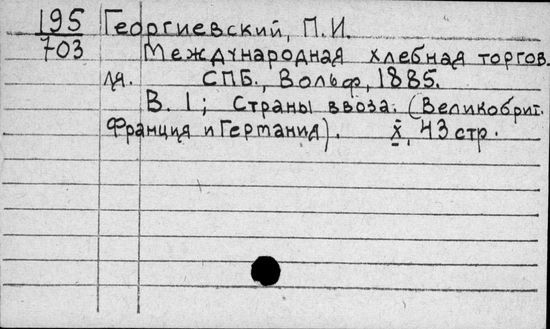 195 Георгиевский, П.И.
703 Международная хлебная торгов
ля. СПБ., Вольф, 1885.
В. 1; Страны ввоза. (Великобрит.
Франция и Германия). X, 43 стр.